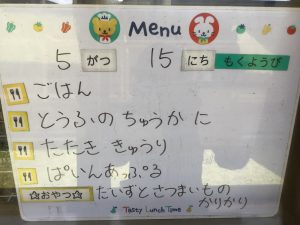 Menu
5 がつ 15 にち もくようび
ごはん
とうふの ちゅうか に
たたき きゅうり
ぱいんあっぷる
☆おやつ☆ たいずとさつまいもの
かりかり
Tasty Lunch Time